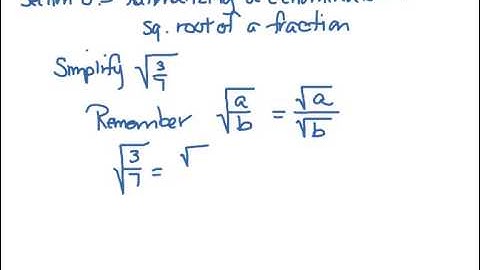 sq. root of a fraction
Simplify √(3/7)
Remember √(a/b) = √a/√b
√(3/7) = √